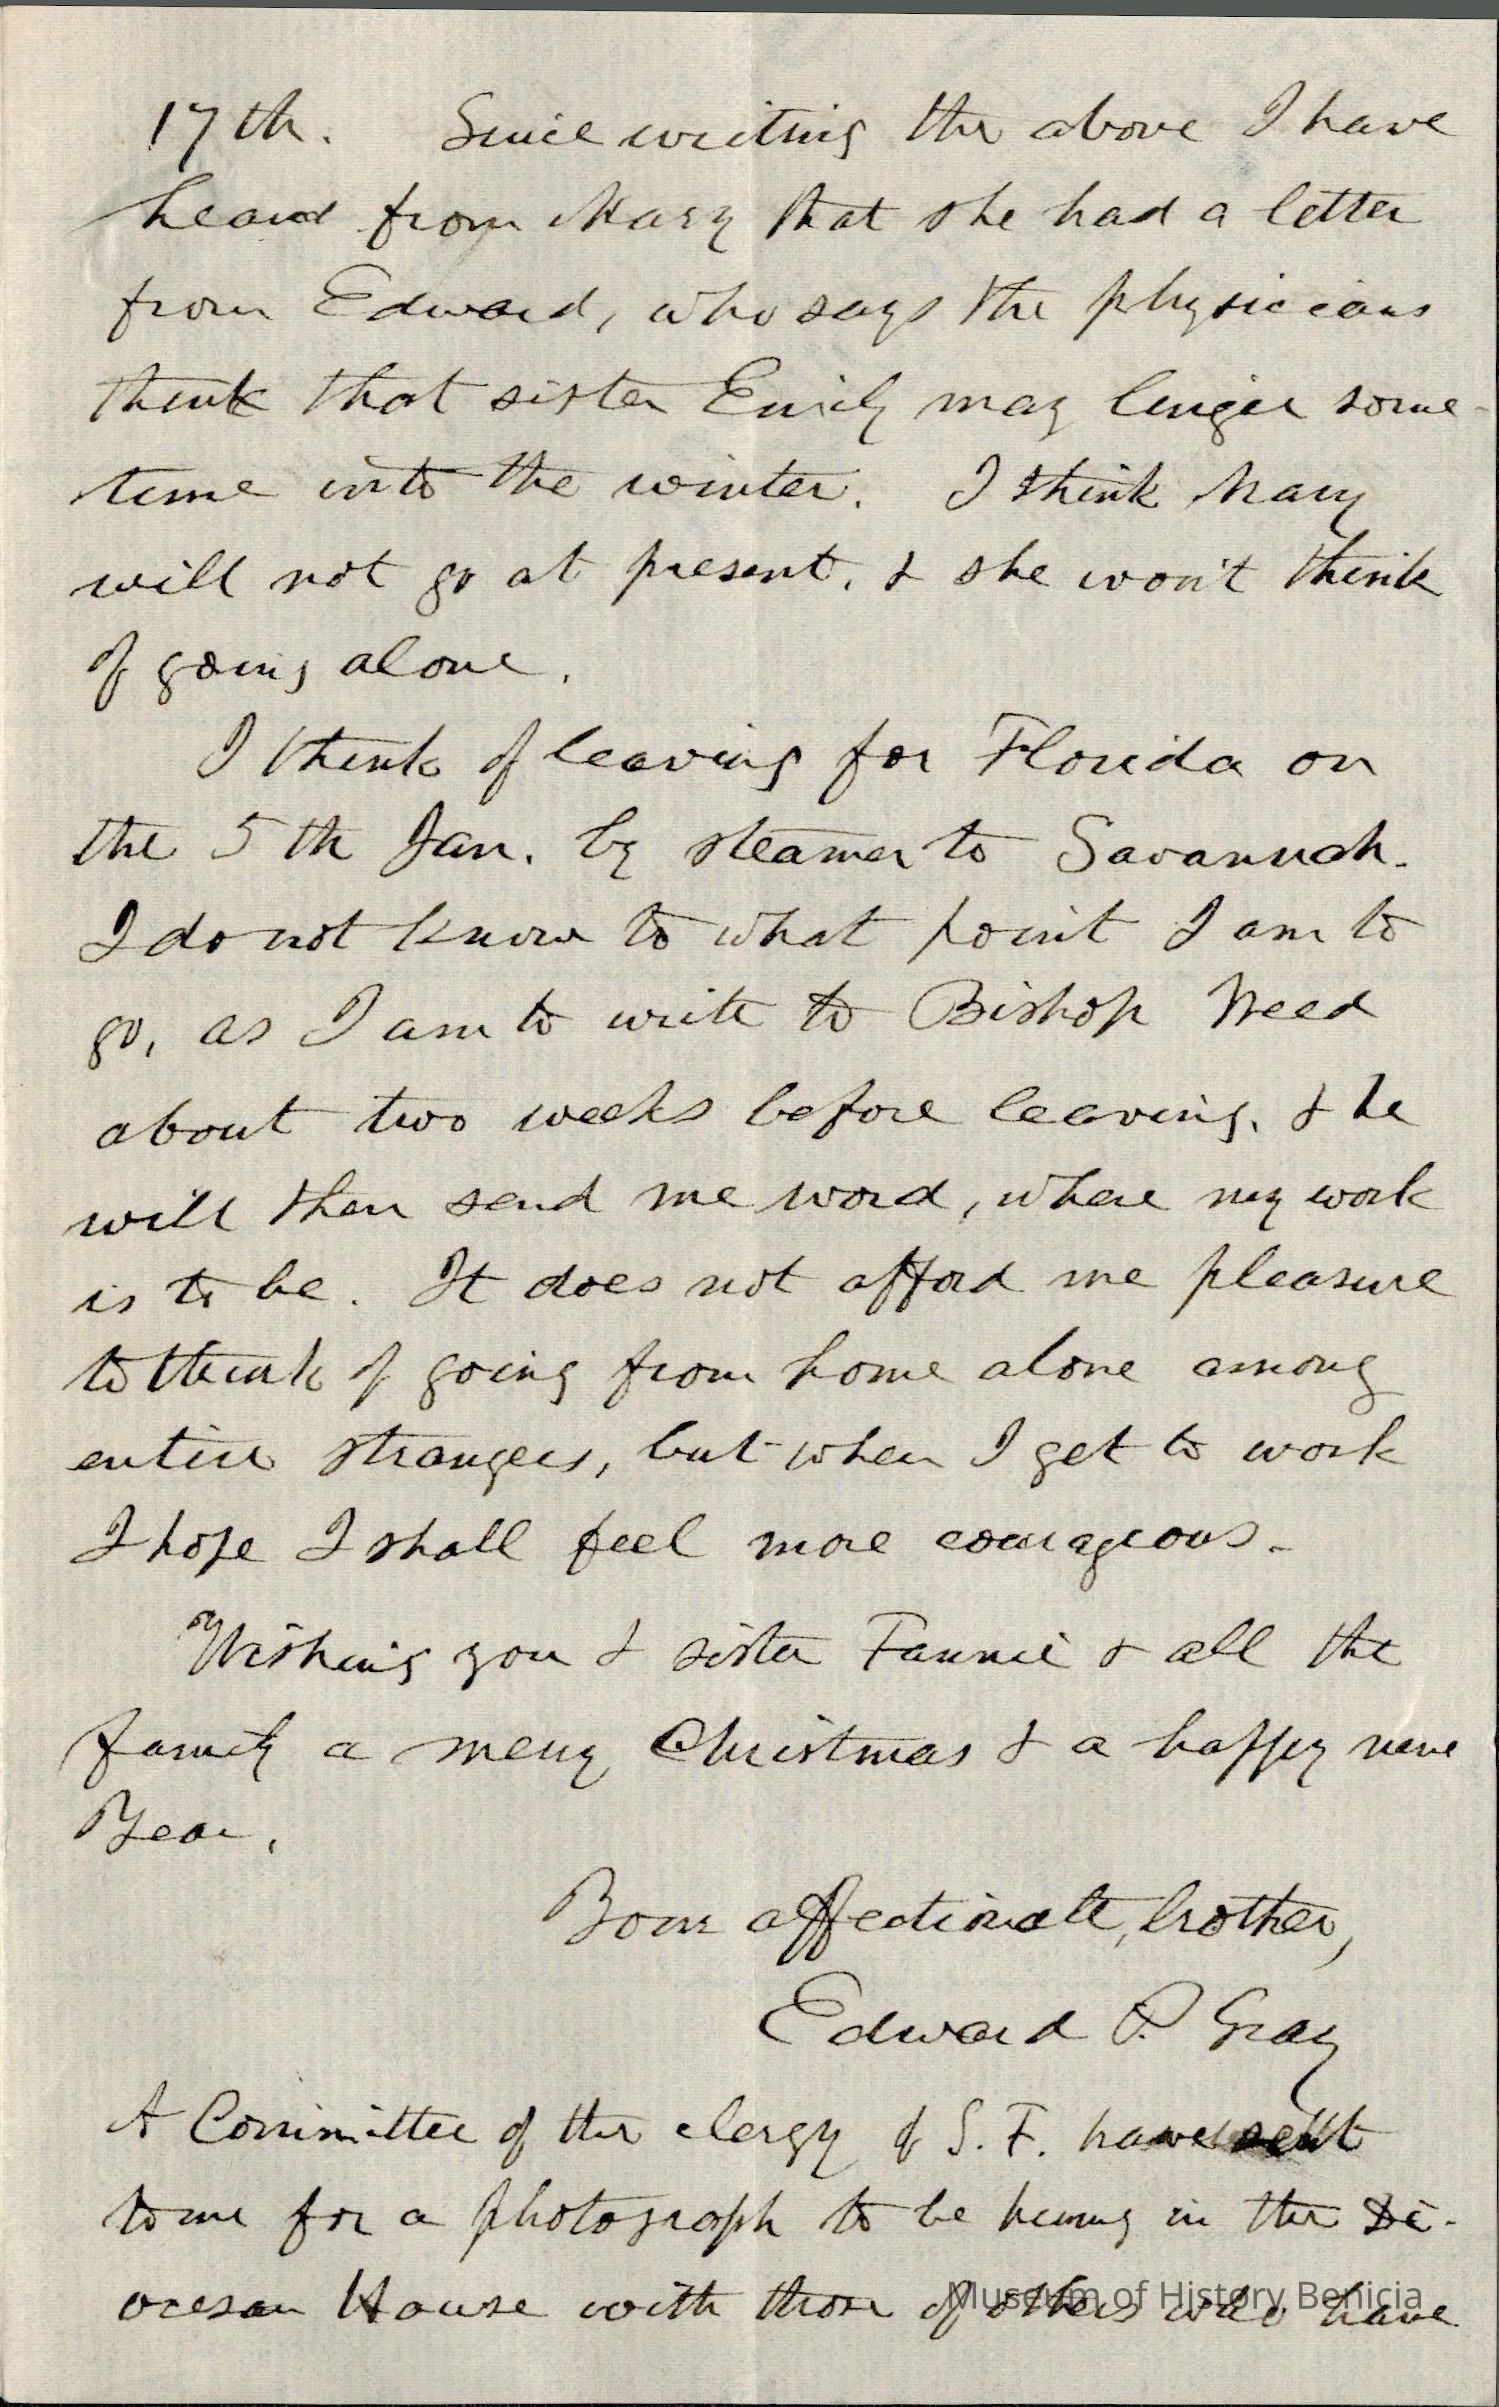 17th. Since writing the above I have
heard from Mary that she had a letter
from Edward, who says the physicians
think that sister Emily may linger some-
time into the winter. I think Mary
will not go at present, & she won't think
of going alone.
I think of leaving for Florida on
the 5th Jan. by steamer to Savannah.
I do not know to what point I am to
go, as I am to write to Bishop Weed
about two weeks before leaving, & he
will then send me word, where my work
is to be. It does not afford me pleasure
to think of going from home alone among
entire strangers, but when I get to work
I hope I shall feel more courageous.
Wishing you & sister Fannie & all the
family a merry Christmas & a happy new
Year.
Your affectionate brother,
Edward P. Gray
A Committee of the clergy of S. F. have sent
to me for a photograph to be hung in the Di-
ocesan House with those of others who have
Museum of History Benicia